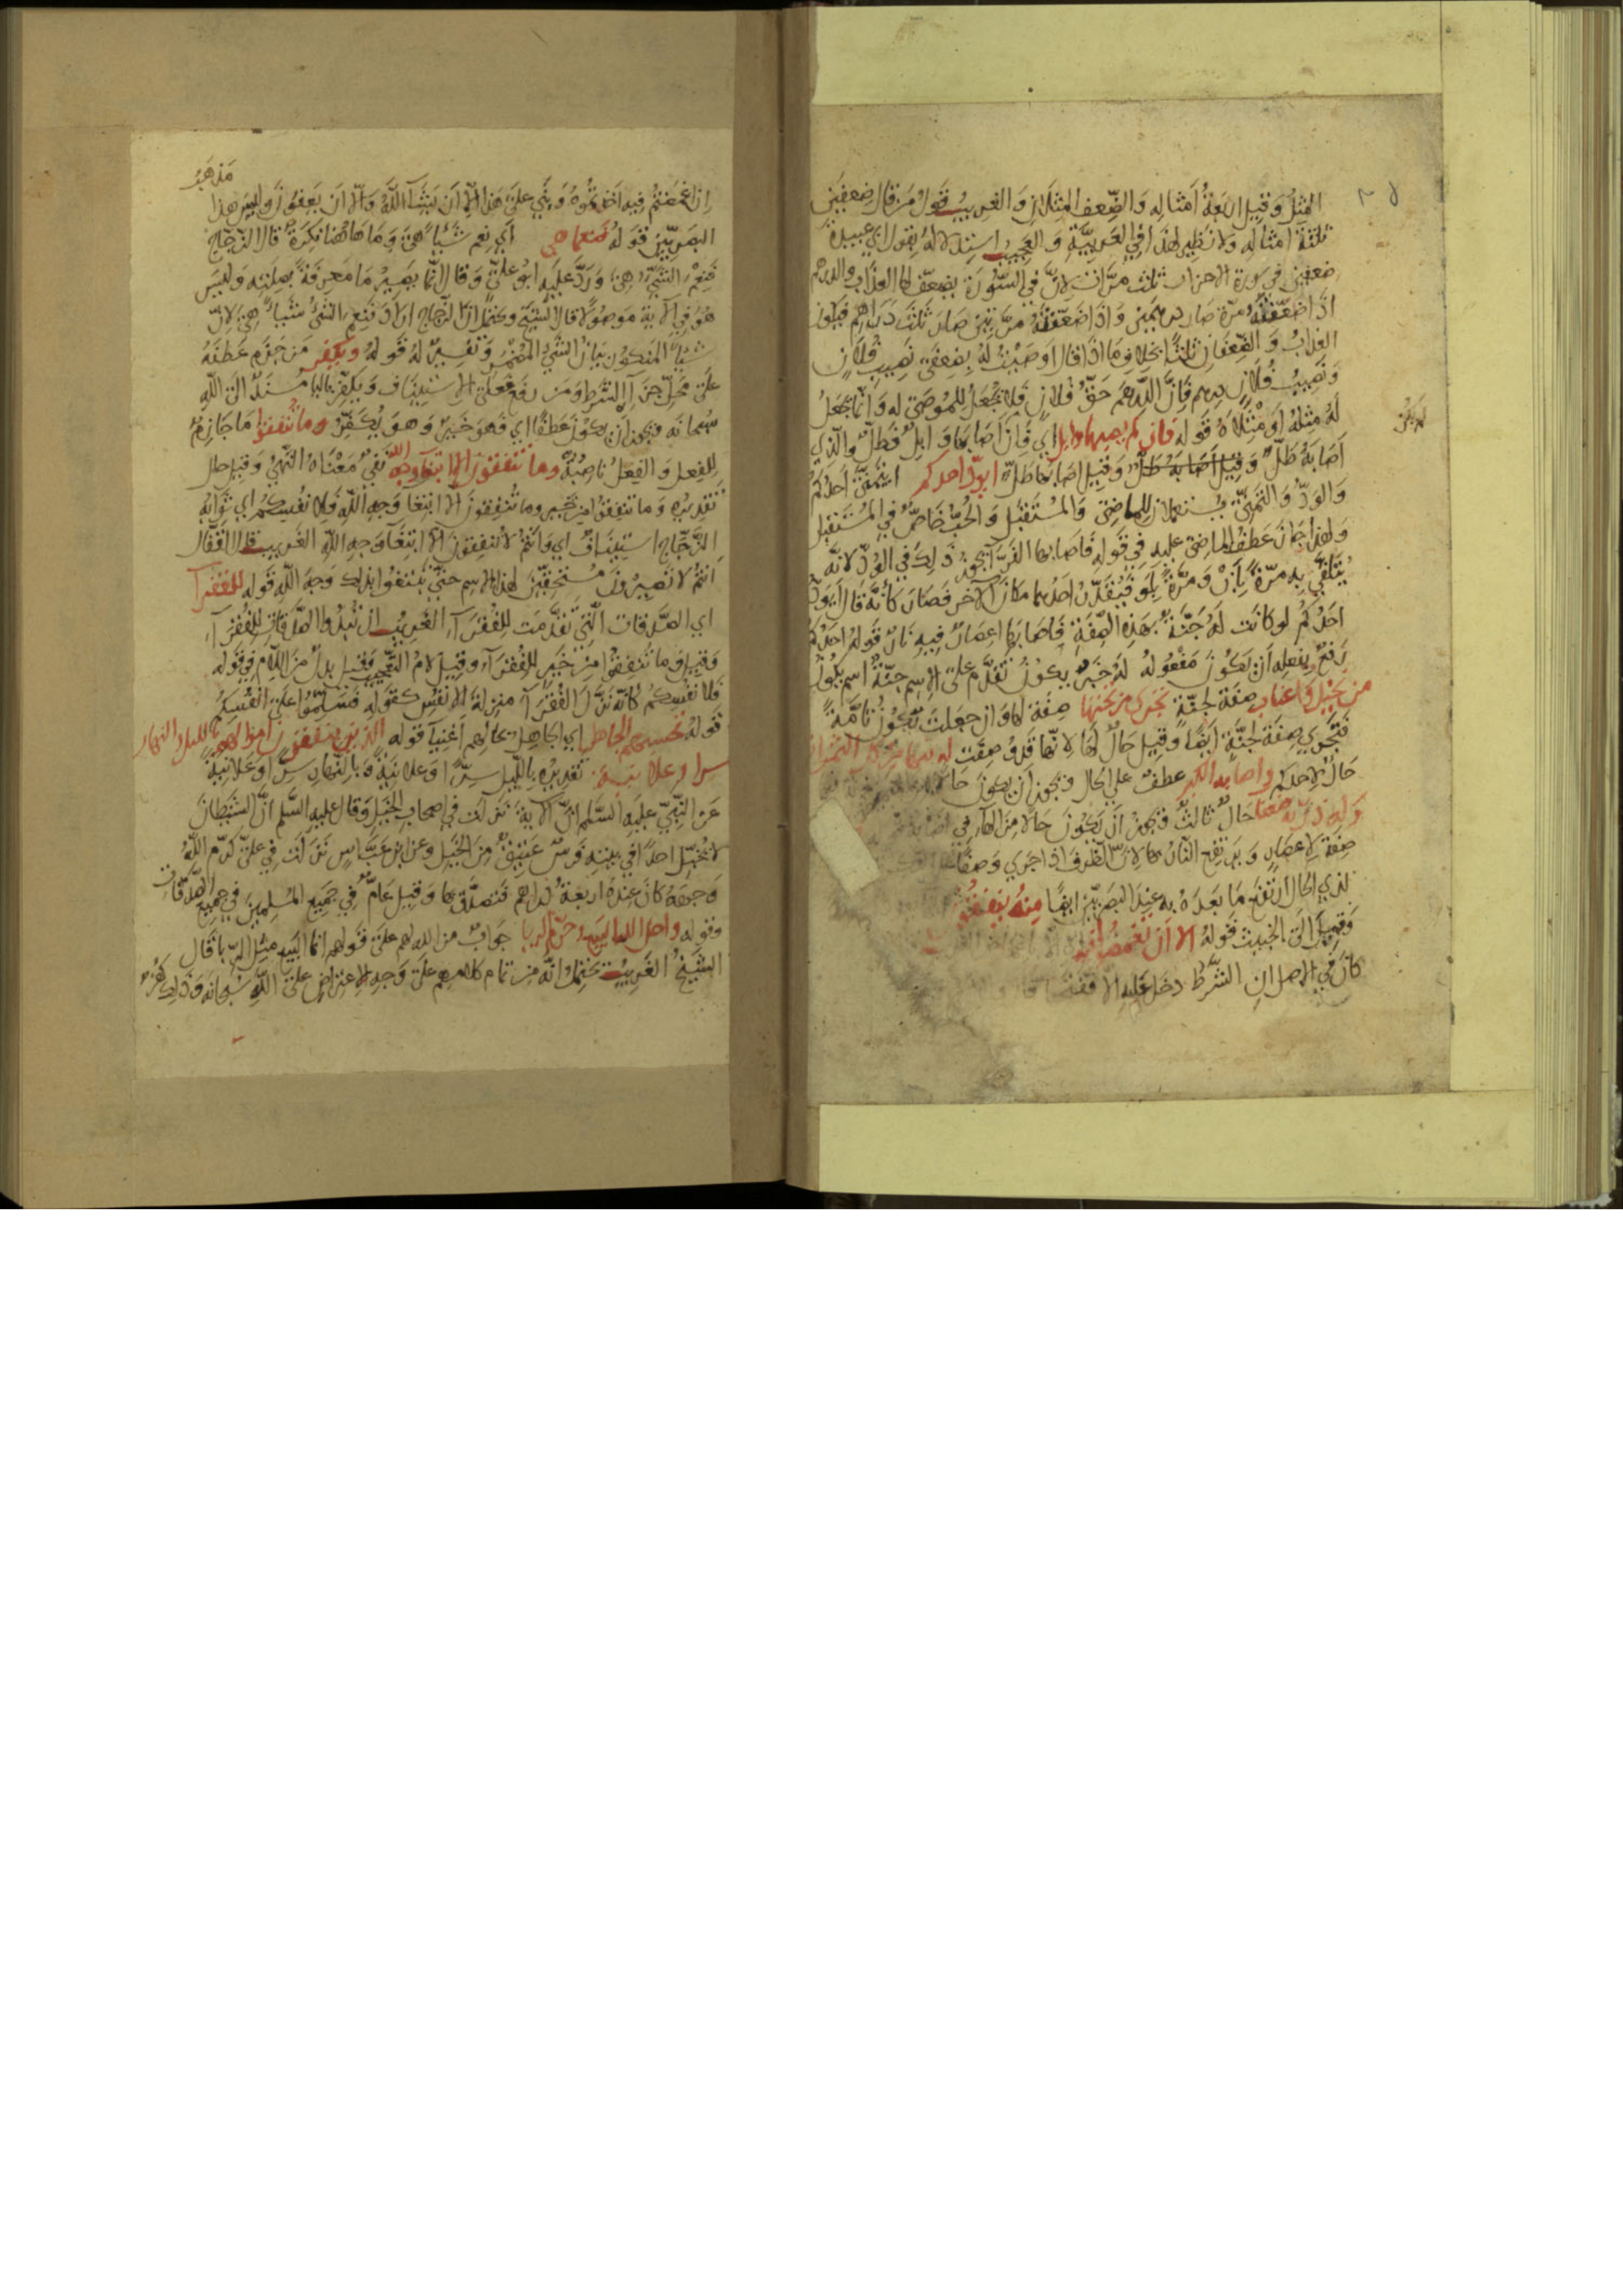 المِثل وقيل اربعة أمثاله والضعف المثلان والغريب قول من قال ضعفين
ثلثة أمثاله ولا نظير لهذا في العربية والعجيب استدلاله بقول ابي عبيدة
ضعفين في سورة الاحزاب ثلث مرات لان في السورة يضعف لها العذاب والدرهم
اذا اضعفته مرة صار درهمين واذا اضعفته مرتين صار ثلث دراهم فيكون
العذاب والضعفان ثلثا بخلاف ما اذا قال اوصيت له بضعفي نصيب فلان
ونصيب فلان درهم فان الدرهم حق فلان فلا يجعل للموصى له وانما يجعل
له مثله أو مثلاه قوله فان لم يصبها وابل اي فان اصابها وابل فطل والذي
أصابه طل وقيل أصابه طل وقيل اصابها طل ايود احدكم ايتمنى احدكم
والود والتمني يستعملان للماضي والمستقبل والحب خاص في المستقبل
ولهذا جاز عطف الماضي عليه في قوله فاصابها الفراء يجوز ذلك في الود لانه
يتلقى به مرة بأن ومرة بلو فيقدر احدهما مكان الآخر فصار كأنه قال ايود
احدكم لو كانت له جنة بهذه الصفة فاصابها اعصار فيه نار قوله احدكم
رفع بفعله أن تكون مفعوله له خبر يكون تقدم على الاسم جنة اسم يكون
من نخيل واعناب صفة لجنة تجري من تحتها صفة لها وان جعلت تكون تامة
فتجري صفة لجنة ايضا وقيل حال لها لانها قد وصفت له فيها من كل الثمرات
حال لاحدكم واصابه الكبر عطف على الحال ويجوز ان يكون حالا
وله ذرية ضعفا حال ثالث ويجوز أن يكون حالا من الهاء في اصابه
صفة لاعصار ويرتفع النار بها لان الظرف اذا جرى وصفا
لذي الحال ارتفع ما بعده به عند البصريين ايضا منه تنفقون
وقيل الى الخبيث قوله الا أن تغمضوا فيه
كان في الاصل ان الشرط دخل عليه الا ففتحت
مذهب
إن اغمضتم فيه اخذتموه وبني على هذا الا أن يشاء الله والا أن يعفون وليس هذا
البصريين قوله فنعما هي أي نعم شيئا هي وما هاهنا نكرة قال الزجاج
فنعم الشيء هي ورد عليه ابو علي وقال انما يصير ما معرفة بصلته وليس
هو في الآية موصولا قال الشيخ ويحتمل ان الزجاج اراد فنعم الشئ شيئا هي لان
شيئا المنكور بيان الشيء المضمر وتفسير له قوله ويكفر من جزم عطفه
على محل جزاء الشرط ومن رفع فعلى الاستيناف ويكفر بالياء مسند الى الله
سبحانه ويجوز أن يكون عطفا اي فهو خير وهو يكفر وما تنفقوا ما جازم
للفعل والفعل ناصبة وما تنفقون الا ابتغاء وجه الله نفي معناه النهي وقيل حال
تقديره وما تنفقوا من خير وما تنفقون الا ابتغا وجه الله فلانفسكم اي ثوابه
الزجاج استيناف اي وانتم لا تنفقون الا ابتغاء وجه الله الغريب قال القفال
انتم لا تصيرون مستحقين لهذا الاسم حتى تبتغوا بذلك وجه الله قوله للفقراء
اي الصدقات التي تقدمت للفقراء الغريب ان تبدوا الصدقات للفقراء
وقيل وما تنفقوا من خير للفقراء وقيل لام التعجب وقيل بدل من اللام في قوله
فلانفسكم كانه نزل الفقراء منزلة الانفس كقوله فسلموا على انفسكم
قوله يحسبهم الجاهل اي الجاهل بحالهم أغنيا قوله الذين ينفقون اموالهم بالليل والنهار
سرا وعلانية تقديره بالليل سرا وعلانية وبالنهار سرا وعلانية
عن النبي عليه السلم ان الآية نزلت في اصحاب الخيل وقال عليه السلم ان الشيطان
لا يخبل احدا في بيته فرس عتيق من الخيل وعن ابن عباس نزلت في علي كرم الله
وجهه كان عنده اربعة دراهم فتصدق بها وقيل عام في جميع المسلمين في جميع الصدقات
وقوله واحل الله البيع وحرم الربا جواب من الله لهم على قولهم انما البيع مثل الربا قال
الشيخ الغريب يحتمل انه من تمام كلامهم على وجه الاعتراض على الله سبحانه وذلك كفر